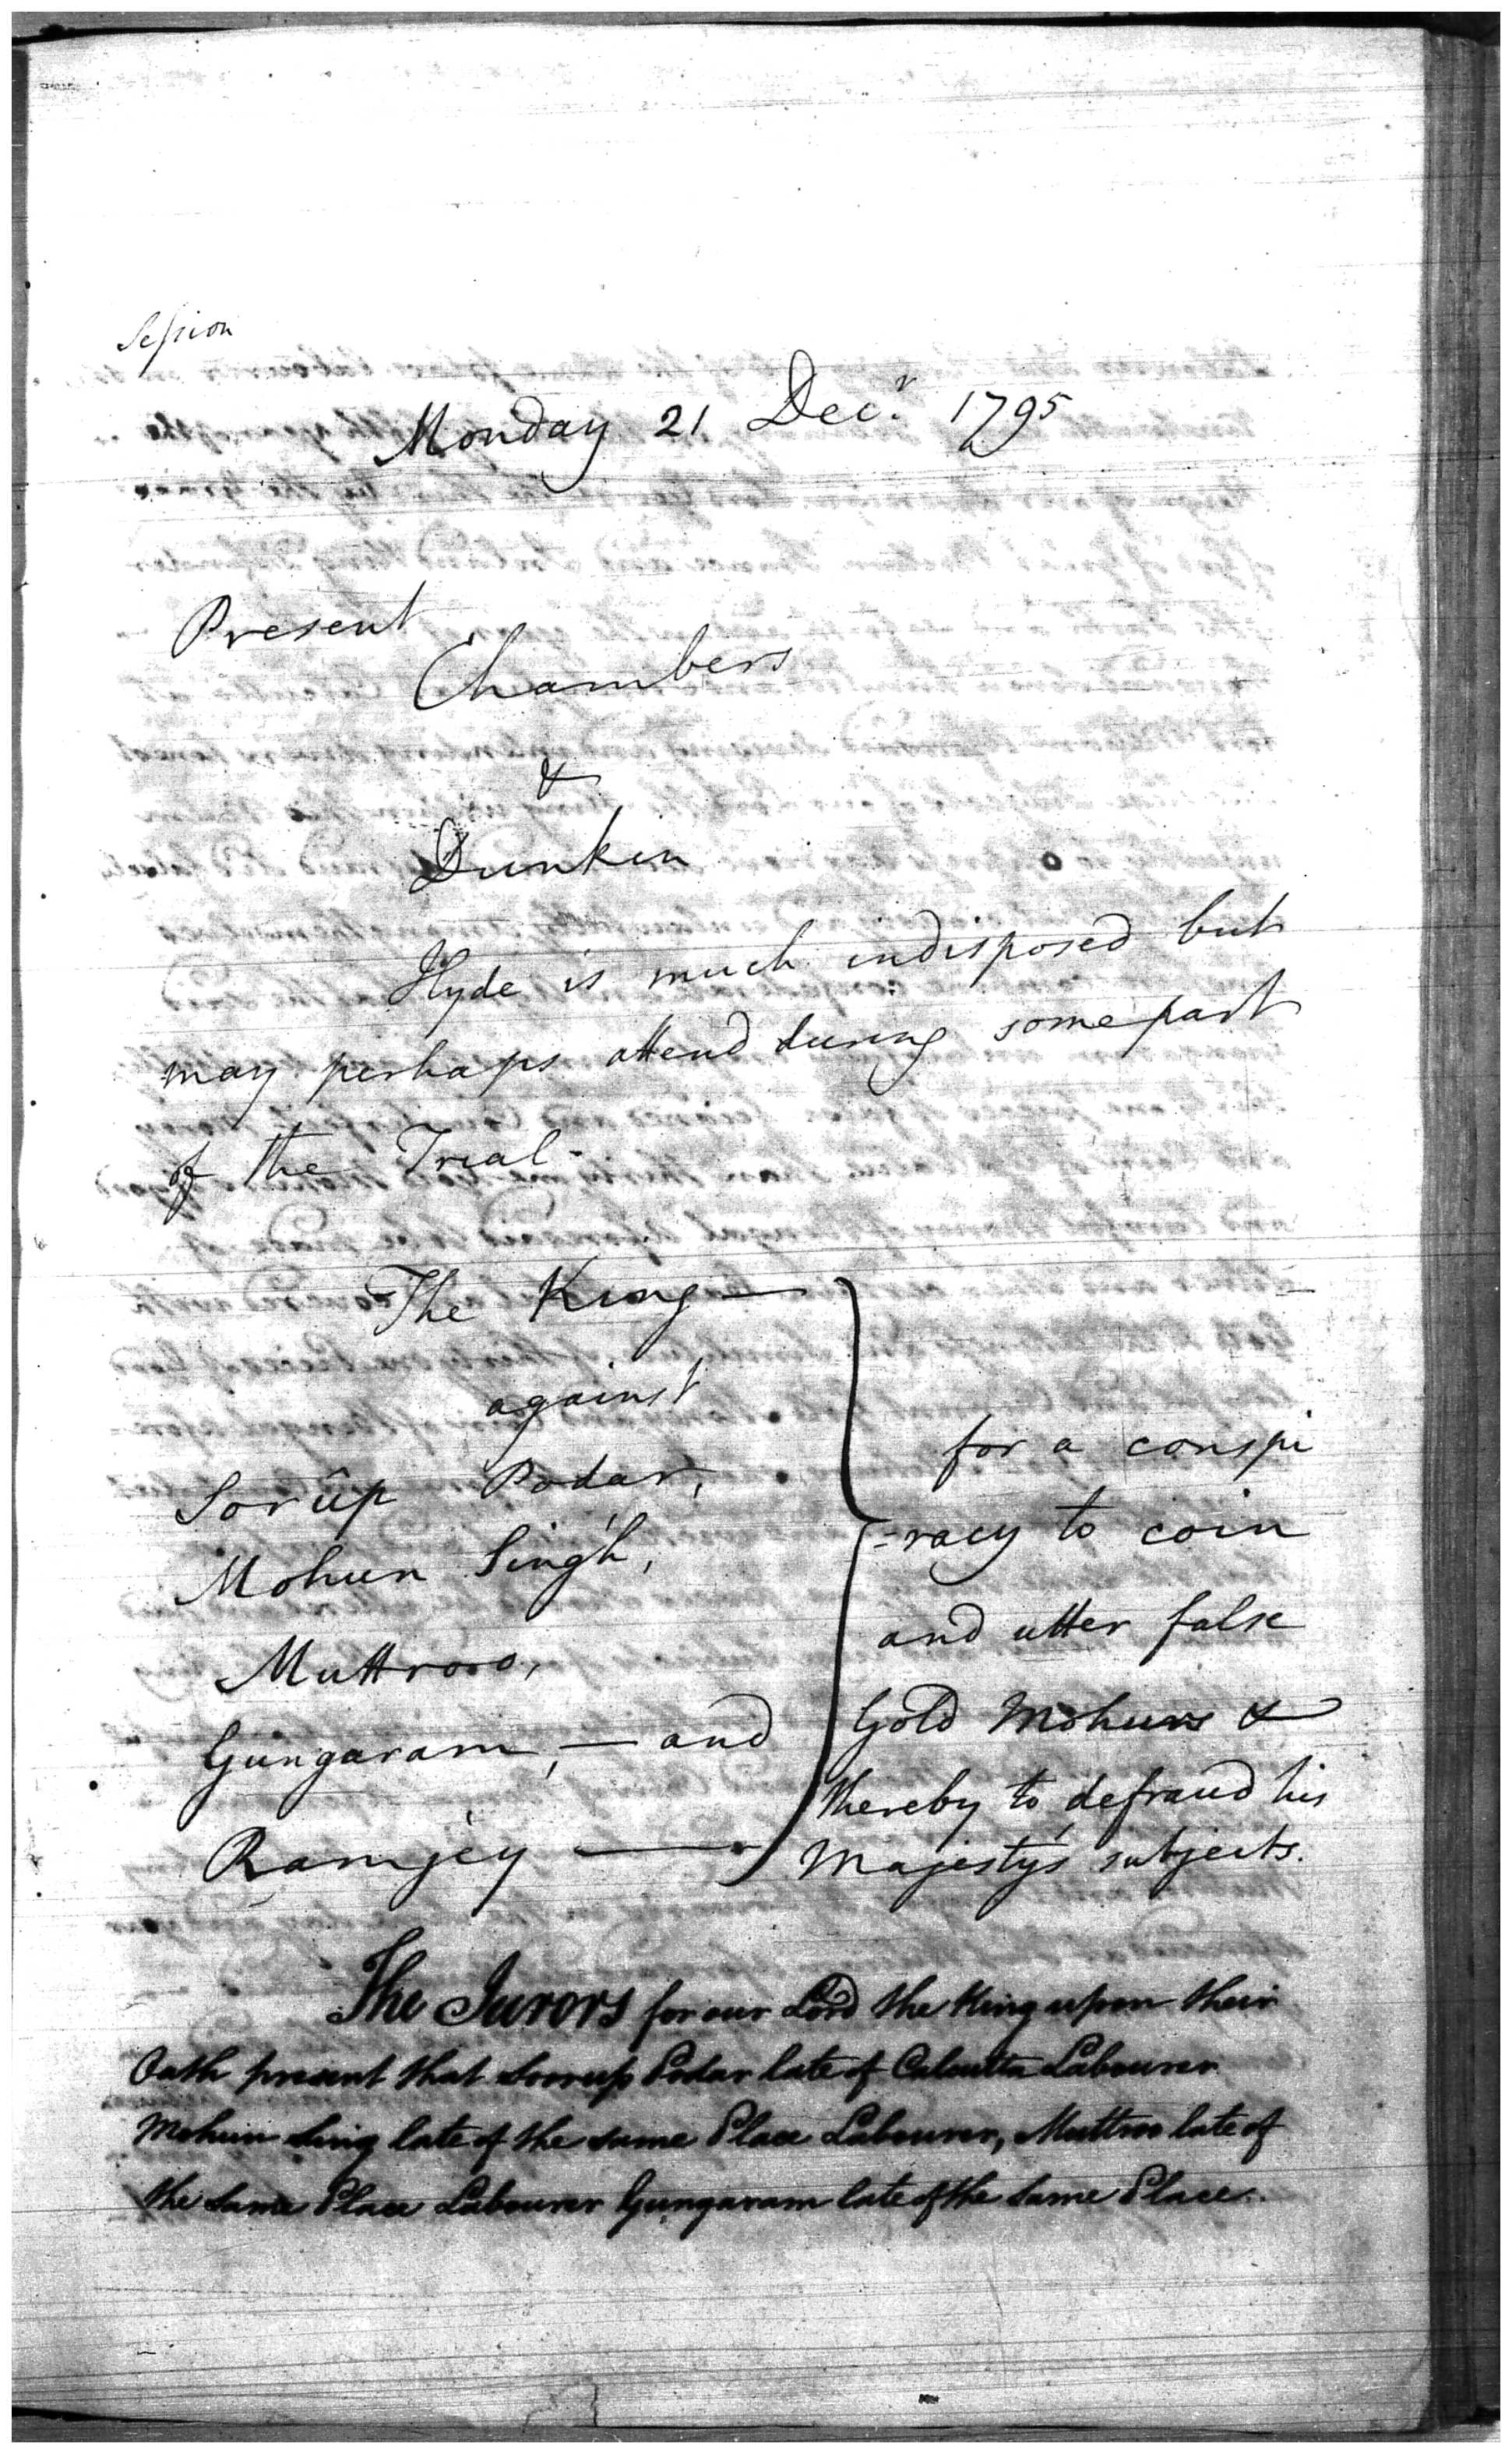 Session
Monday 21 Decr. 1795
Present
Chambers
&
Dunkin
Hyde is much indisposed but
may perhaps attend during some part
of the Trial-
The King —
against
Sorûp Podar,
Mohun Sing'h,
Muttroo,
Gungaram, — and
Ramjéy —
for a conspi
-racy to coin
and utter false
Gold Mohurs &
thereby to defraud his
Majesty's subjects.
The Jurors for our Lord the King upon their
Oath present that Soorup Podar late of Calcutta Labourer
Mohun Sing late of the same Place Labourer, Muttroo late of
the same Place Labourer Gungaram late of the same Place